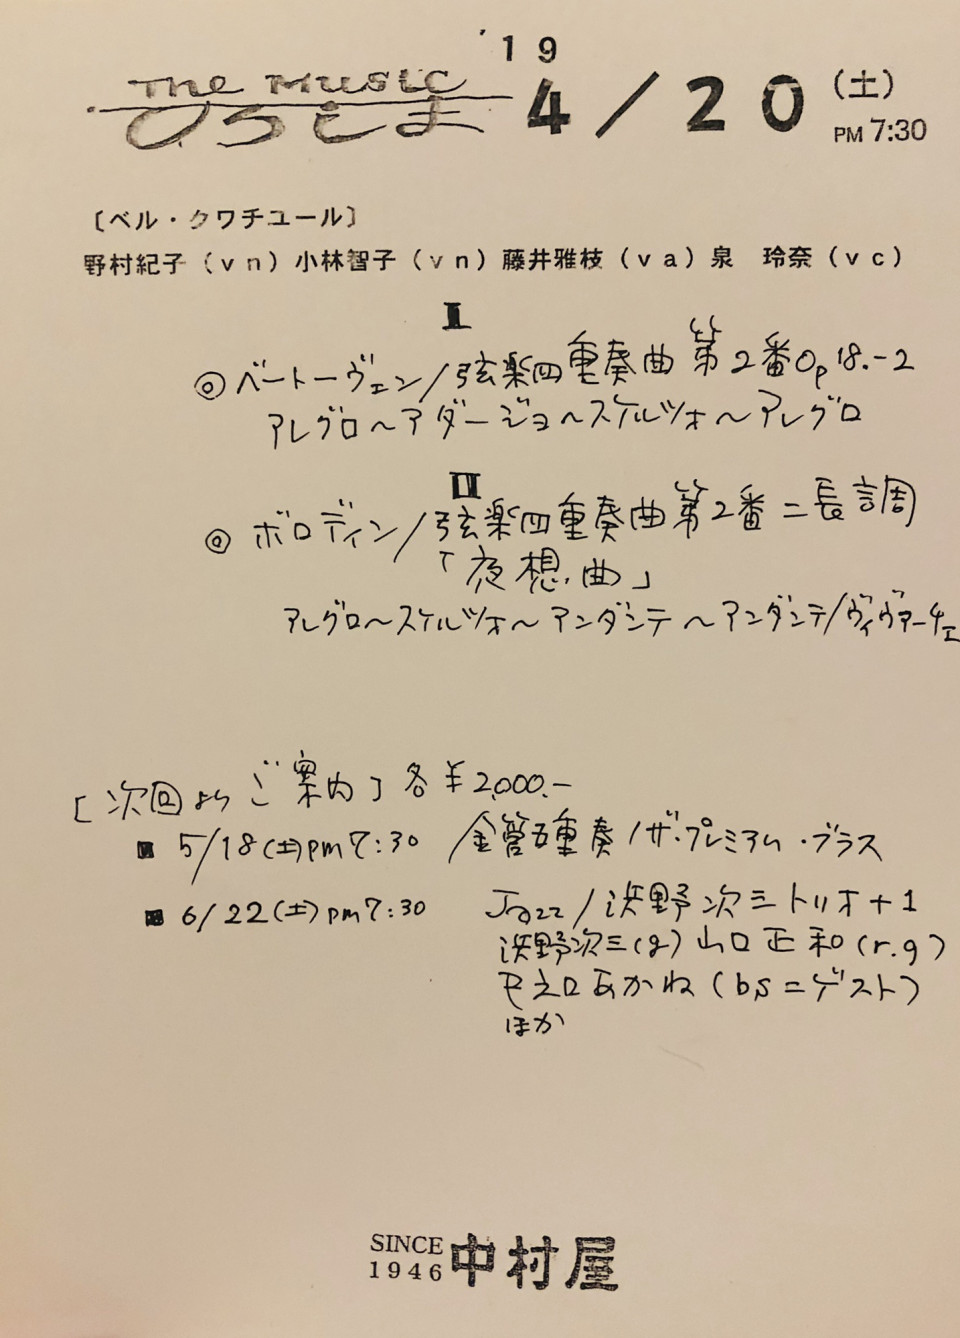 '19
The Music
ひろしま 4/20 (土)
PM 7:30
〔ベル・クワチユール〕
野村紀子(vn)小林智子(vn)藤井雅枝(va)泉 玲奈(vc)
I
◎ベートーヴェン/弦楽四重奏曲 第2番Op18.-2
アレグロ～アダージョ～スケルツォ～アレグロ
II
◎ ボロディン/弦楽四重奏曲第2番ニ長調
「夜想曲」
アレグロ～スケルツォ～アンダンテ～アンダンテ/ヴィヴァーチェ
[次回よりご案内]各¥2,000.-
■ 5/18(土)pm7:30 /金管五重奏/ザ・プレミアム・ブラス
■ 6/22(土)pm7:30 Jazz/浜野次三トリオ+1
浜野次三(g)山口正和(r.g)
あかね(bs=ゲスト)
ほか
SINCE
1946 中村屋